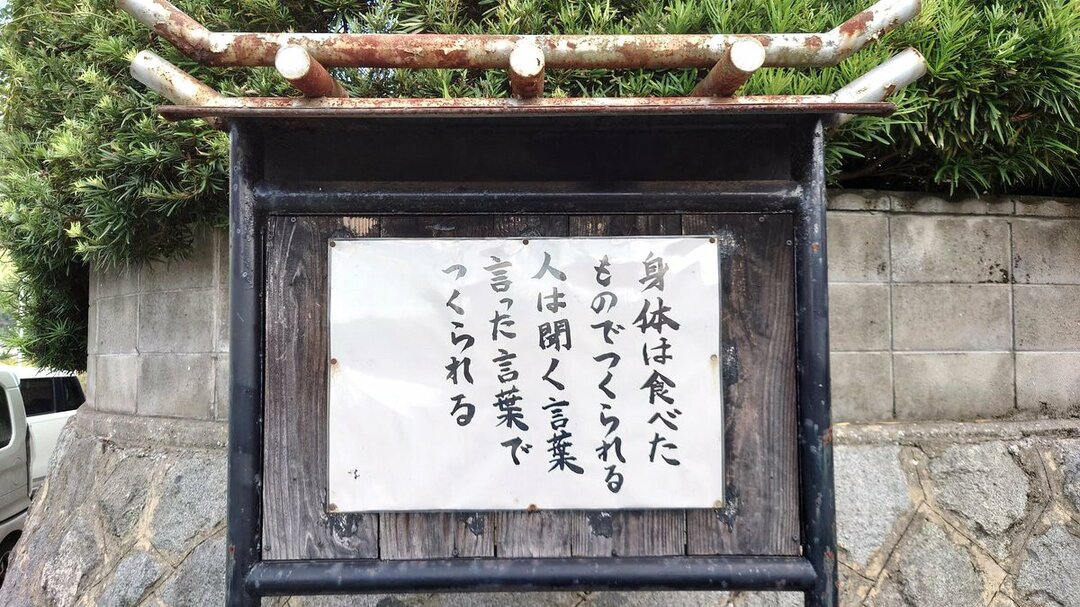 身体は食べた
ものでつくられる
人は聞く言葉
言った言葉で
つくられる